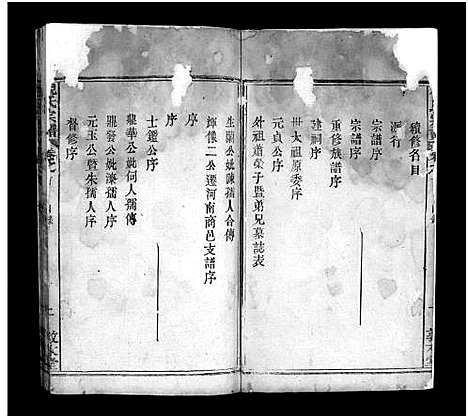 續修名目
派行
宗譜序
宗譜序
重修族譜序
建祠序
卅太祖原委序
元貞公序
外祖蕭榮子暨弟兄墓誌表
生蘭公妣陳孺人合傳
輝像二公遷河南商邑支譜序
序
序
士鑑公序
公妣何人孺傳
公妣濂孺人序
元玉公暨朱孺人序
督修序
敦本堂